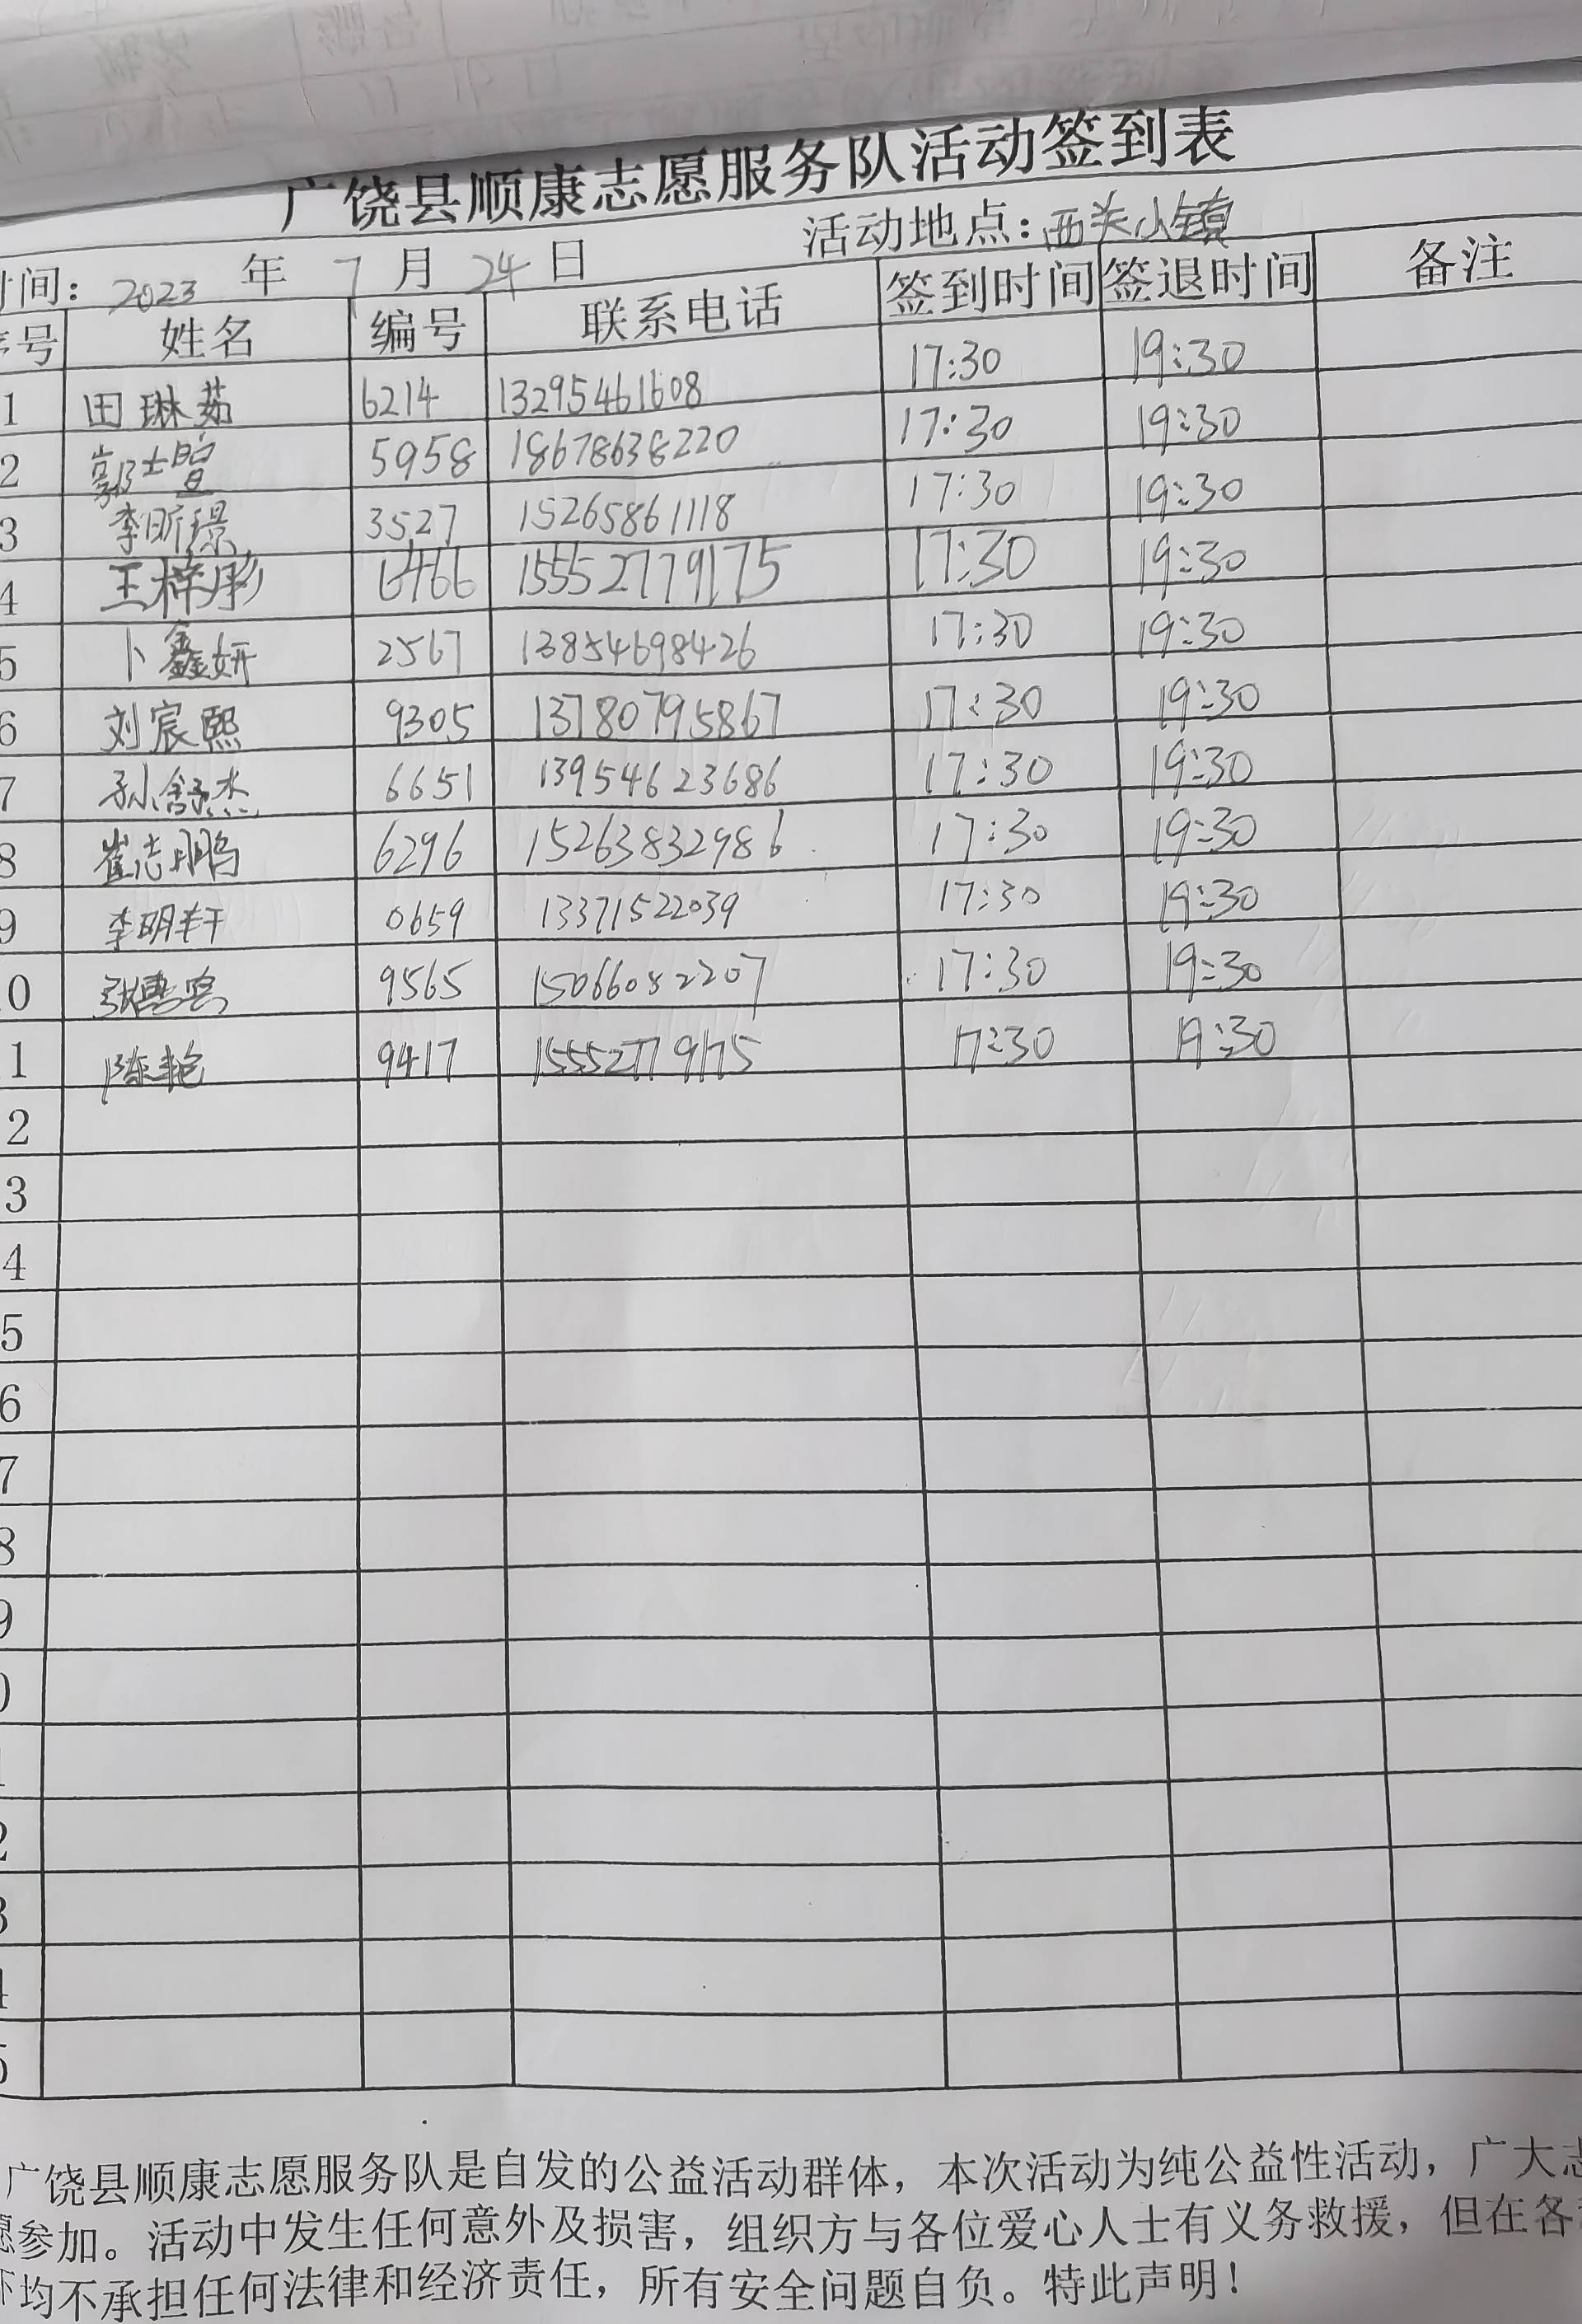 广饶县顺康志愿服务队活动签到表
时间：2023 年 7 月 24 日 活动地点：西关小镇
序号 姓名 编号 联系电话 签到时间 签退时间 备注
1 田琳茹 6214 13295461608 17:30 19:30
2 郭士暄 5958 18678638220 17:30 19:30
3 李昕璟 3527 15265861118 17:30 19:30
4 王梓彤 6466 15552779175 17:30 19:30
5 卜鑫妍 2567 13854698426 17:30 19:30
6 刘宸熙 9305 13780795867 17:30 19:30
7 孙舒杰 6651 13954623686 17:30 19:30
8 崔志鹏 6296 15263832986 17:30 19:30
9 李明轩 0659 13371522039 17:30 19:30
0 张 9565 15066082207 17:30 19:30
1 陈艳 9417 15552779175 17:30 19:30
2
3
4
5
6
7
8
9
0
1
2
3
4
5
广饶县顺康志愿服务队是自发的公益活动群体，本次活动为纯公益性活动，广大志
愿参加。活动中发生任何意外及损害，组织方与各位爱心人士有义务救援，但在各
均不承担任何法律和经济责任，所有安全问题自负。特此声明！